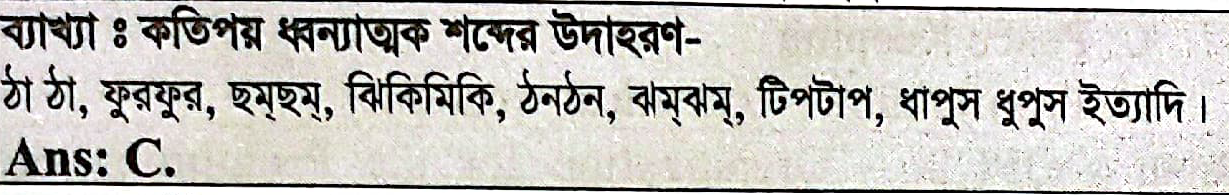 ব্যাখ্যা ঃ কতিপয় ধ্বন্যাত্মক শব্দের উদাহরণ-
ঠা ঠা, ফুরফুর, ছম্‌ছম্‌, ঝিকিমিকি, ঠনঠন, ঝম্‌ঝম্‌, টিপটাপ, ধাপুস ধুপুস ইত্যাদি।
Ans: C.